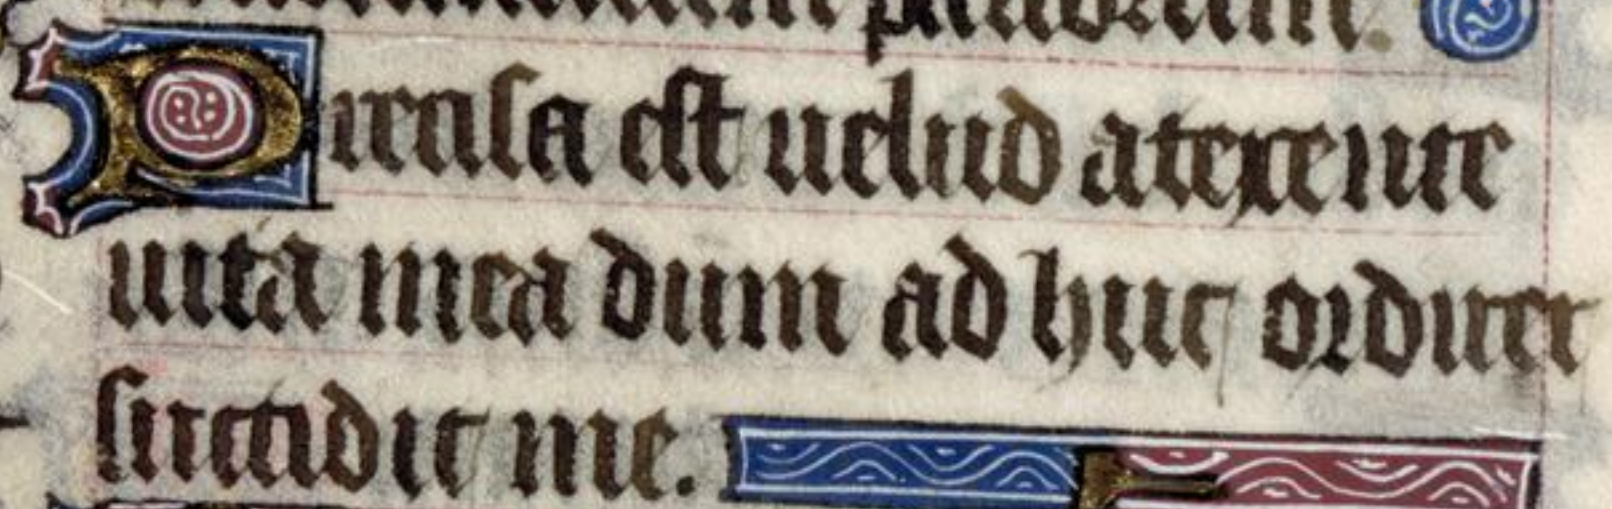 pastorum.
Precisa est uelud a texente
uita mea dum ad huc ordirer
succidit me.